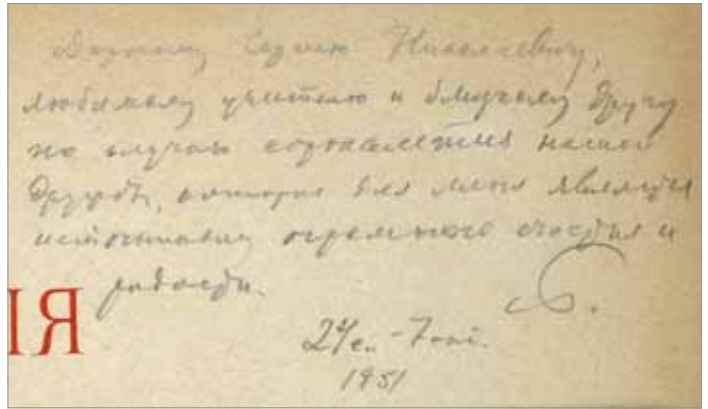 Дорогому Сергею Николаевичу,
любимому учителю и близкому другу
по случаю сорокалетия нашей
дружбы, которая для меня является
источником огромного счастья и
радости.
ІЯ
1951